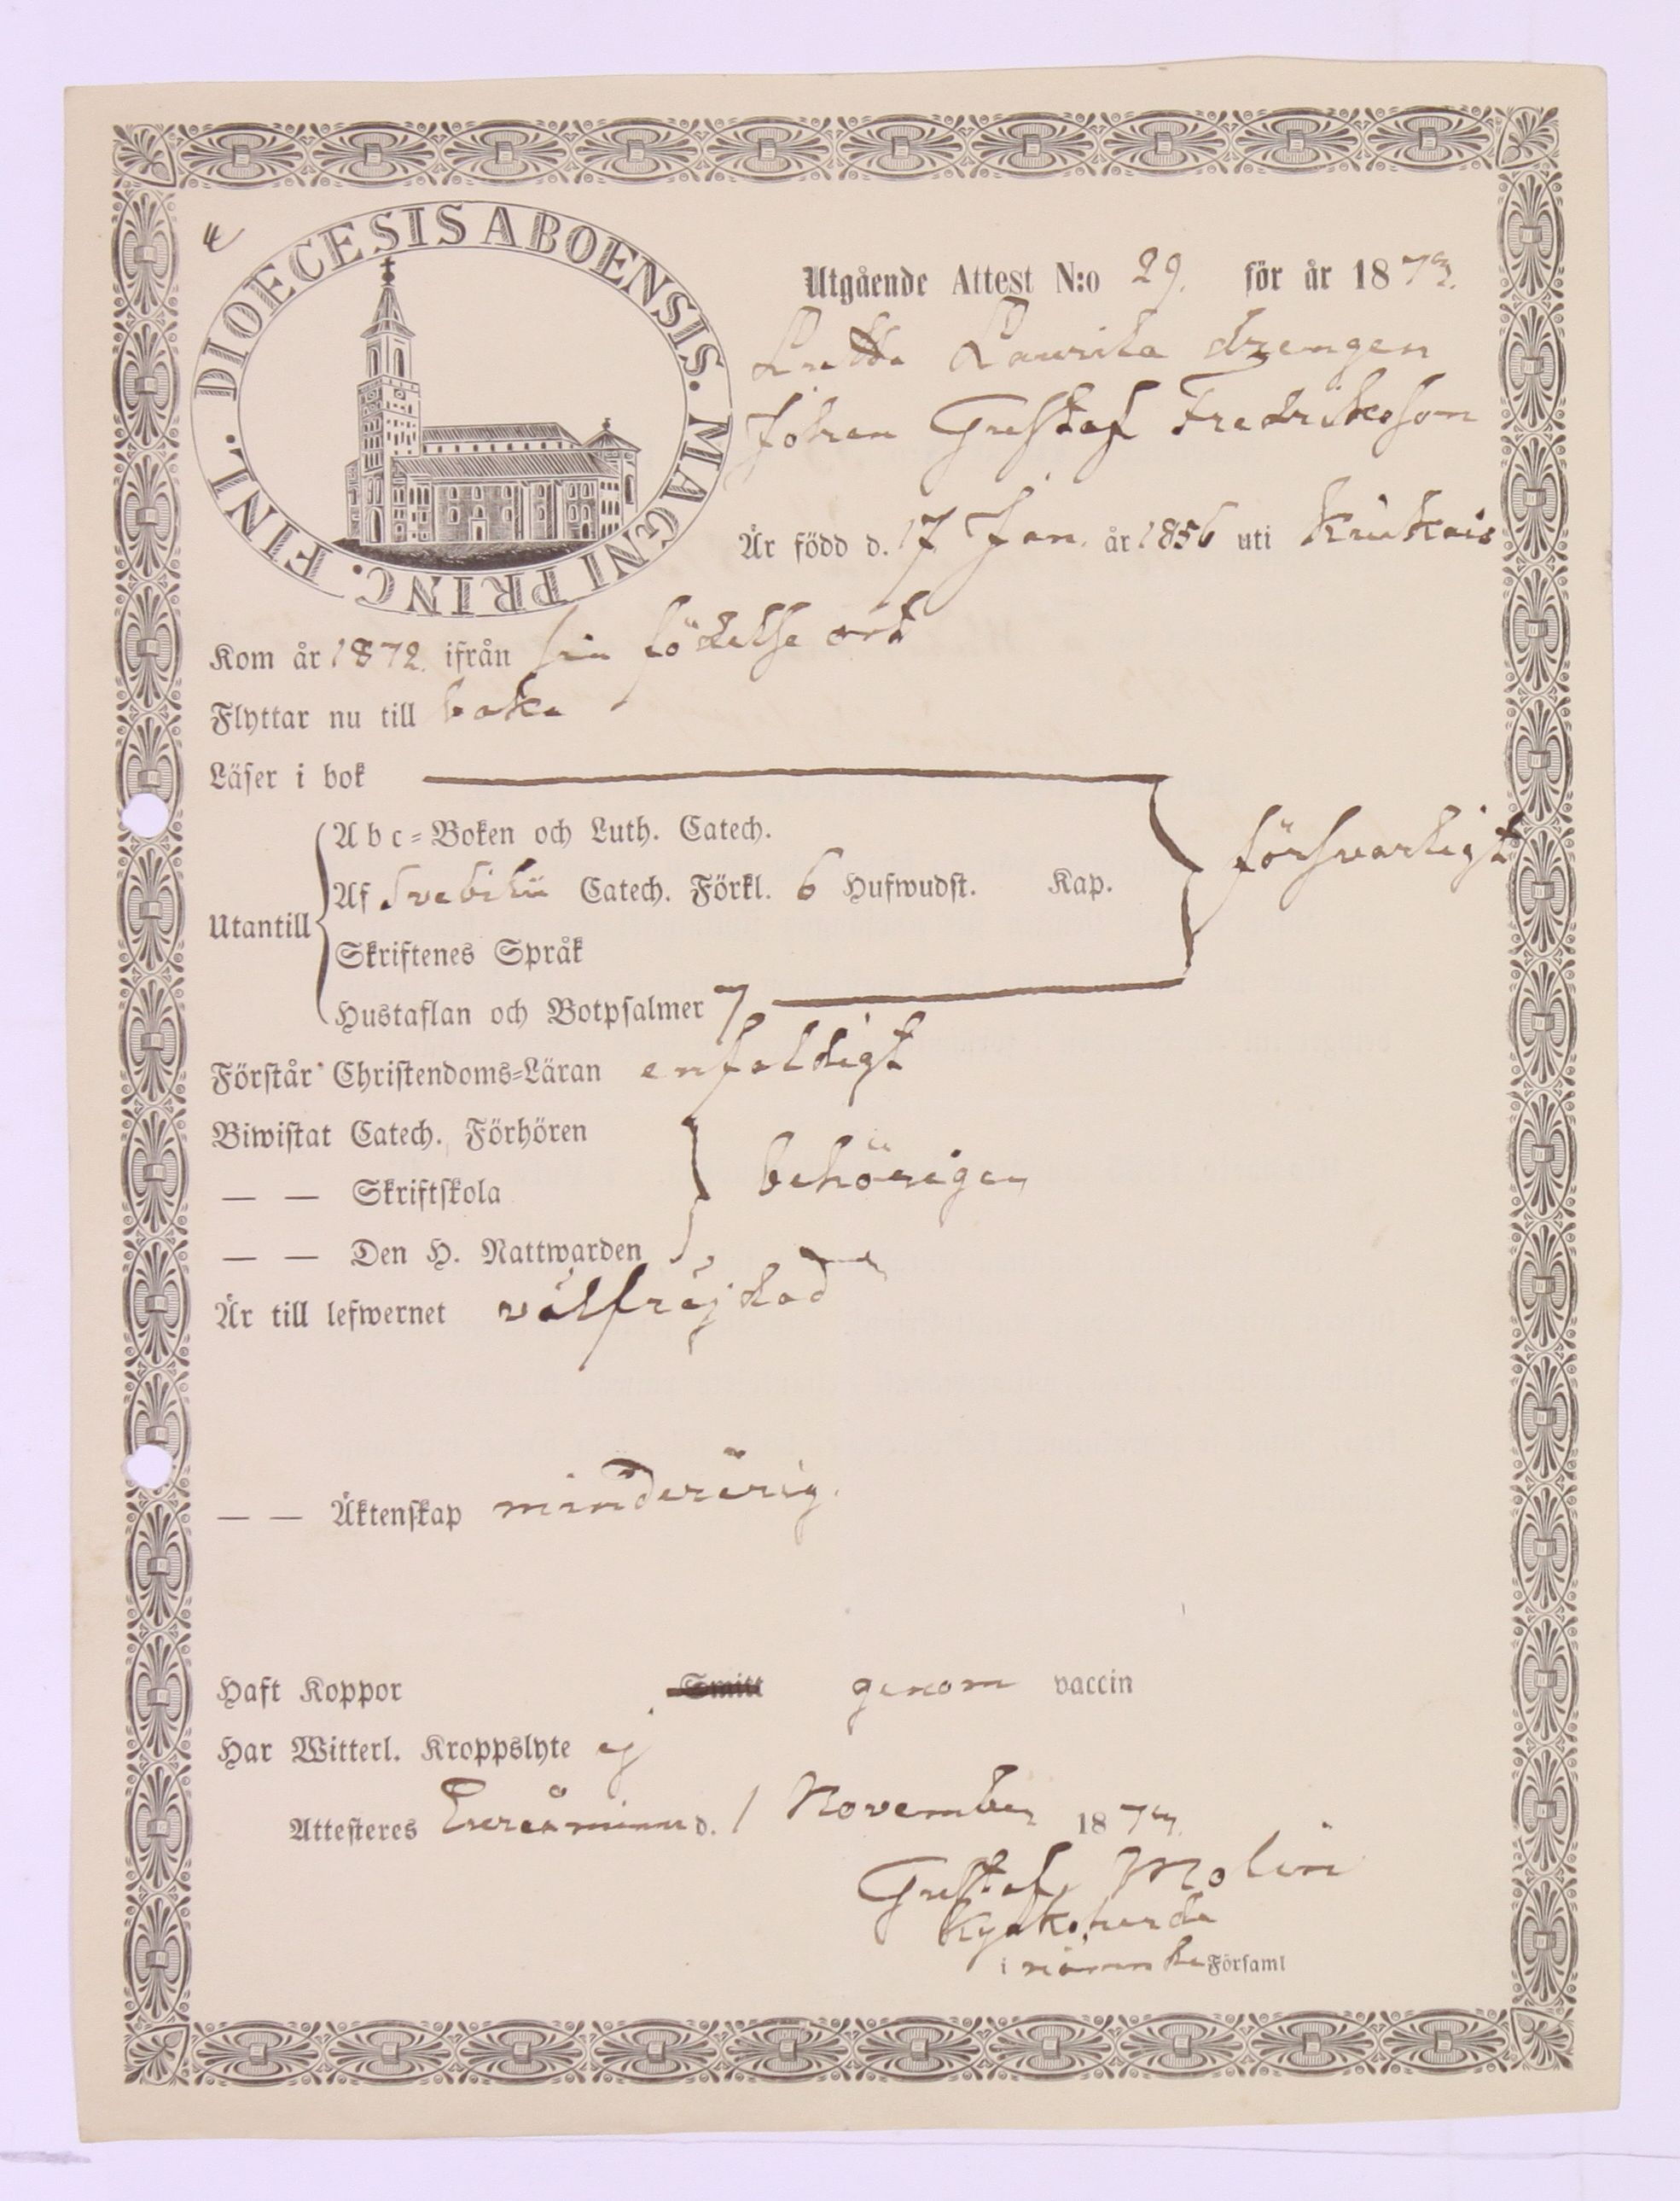 DIOECESIS ABOENSIS. MAGNI PRINC. FINL.
Utgående Attest N:o 29. för år 1873.
Laurila drengen
Johan Gustaf Fredriksson
Är född d. 17 Jan. år 1856 uti Kiukais
Kom år 1872. ifrån sin födelse ort
Flyttar nu till baka
Läser i bok
Abc-Boken och Luth. Catech.
Af Svebilii Catech. Förkl. 6 Hufwudst. Kap.
försvarligt
Utantill
Skriftenes Språk
Hustaflan och Botpsalmer 7
Förstår Christendoms-Läran enfaldigt
Biwistat Catech. Förhören
— — Skriftskola behörigen
— — Den H. Nattwarden
Är till lefwernet välfräjdad
— — Äktenskap minderårig.
Haft Koppor Smitt genom vaccin
Har Witterl. Kroppslyte ej
Attesteres Euraåminne d. 1 November 1873.
Gustaf Molin
Kyrkoherde
i nämnde Församl